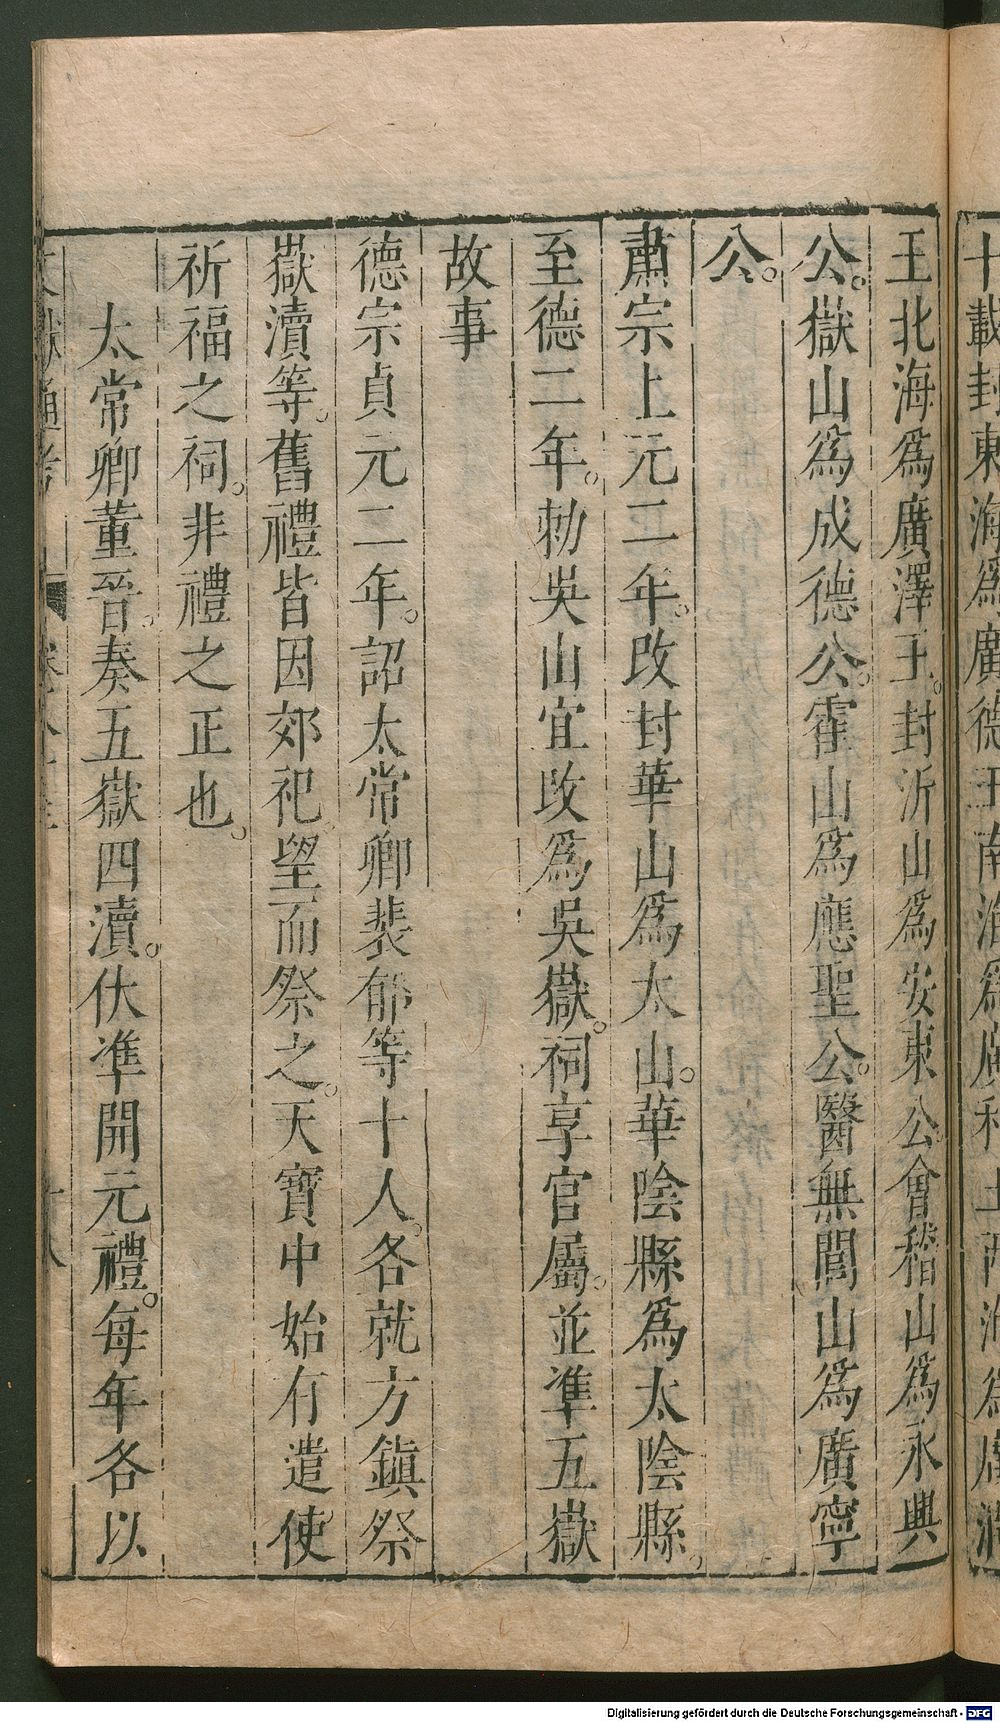 十載封東海爲廣德王南海爲廣利王西海爲廣潤
王北海爲廣澤王封沂山爲安東公會稽山爲永興
公嶽山爲成德公霍山爲應聖公醫無閭山爲廣寧
公
肅宗上元二年改封華山爲太山華陰縣爲太陰縣
至德二年勅吳山宜改爲吳嶽祠享官屬並準五嶽
故事
德宗貞元二年詔太常卿裴郁等十人各就方鎮祭
嶽瀆等舊禮皆因郊祀望而祭之天寶中始有遣使
祈福之祠非禮之正也
太常卿董晉奏五嶽四瀆伏準開元禮每年各以
獻通考
十八
Digitalisierung gefördert durch die Deutsche Forschungsgemeinschaft - DFG